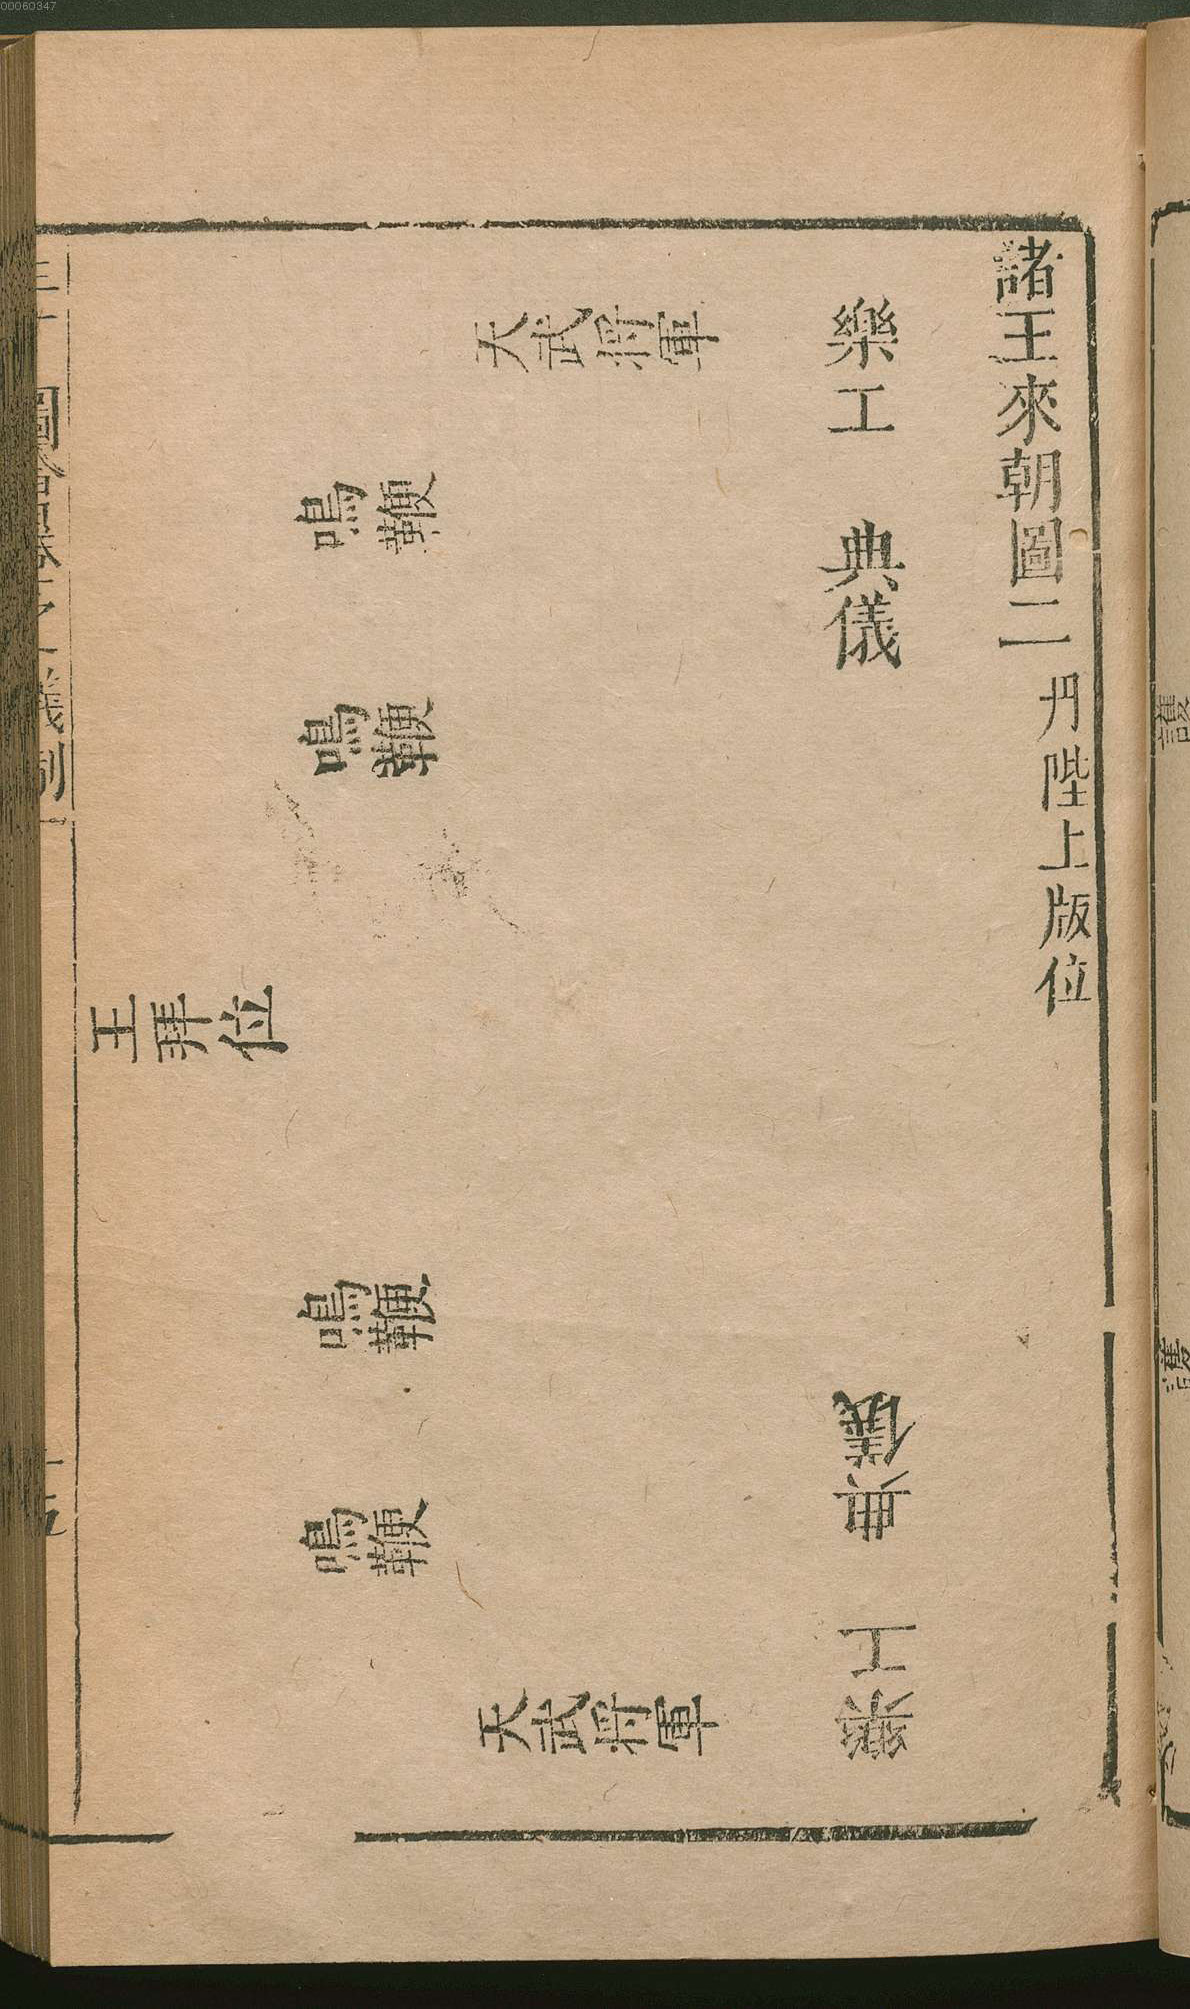 00060347
諸王來朝圖二 丹陛上版位
樂工
典儀
典儀
樂工
天武將軍
天武將軍
鳴鞭
鳴鞭
鳴鞭
鳴鞭
王拜位
護
護